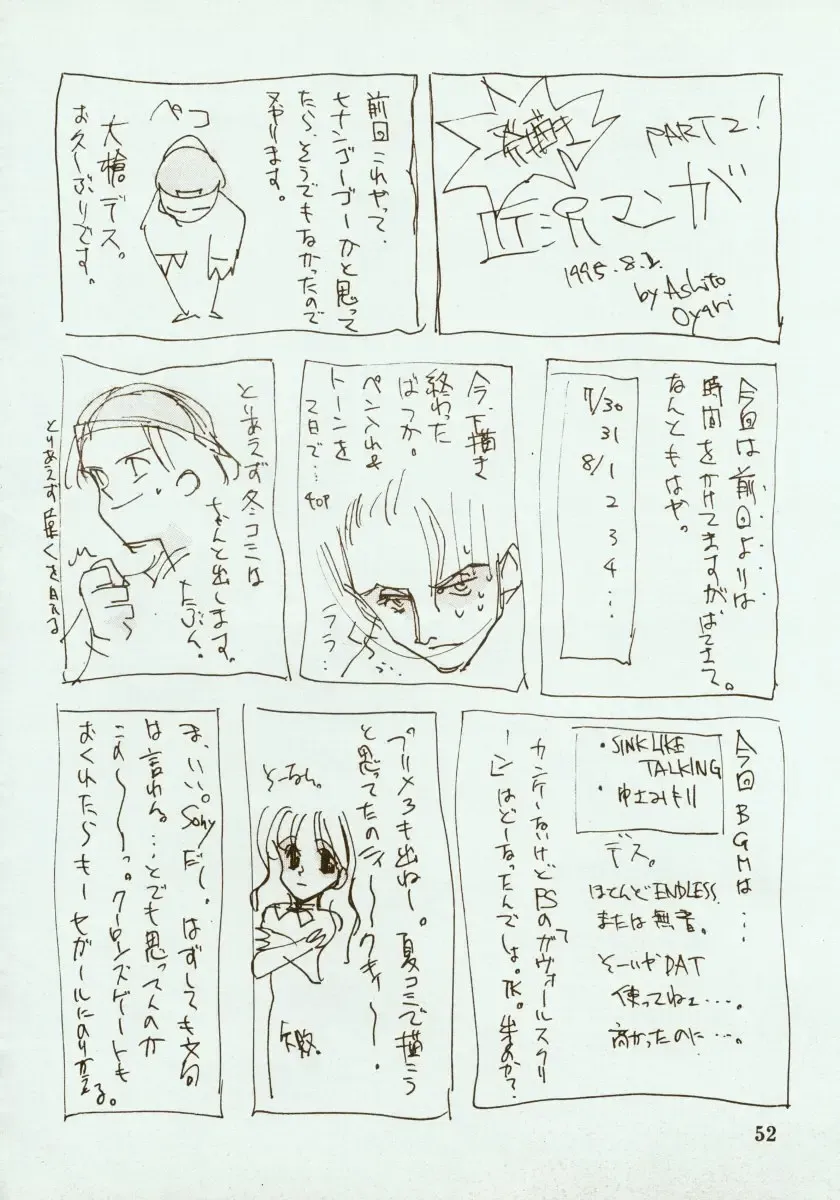 PART2!
近況マンガ
1995.8.2.
by Ashito
Oyari
前回これやって、
セナンゴーゴーかと思って
たら、そうでもなかったので
又やります。
ペコ
大槍デス。
お久しぶりです。
今回は前回よりは
時間をかけてますがばてさて。
なんともはや。
7/30
31
8/1
2
3
4…
今、下描き
終わった
ばっか。
ペン入れ&
トーンを
2日で…
40P
ララ…
とりあえず冬コミは
ちゃんと出します。
たぶん。
とりあえず
今回BGMは…
・SINK LIKE
TALKING
デス。
ほとんどENDLESS.
または無音。
そーいやDAT
使ってねェ…。
高かったのに…。
カンケーないけどPSの「ヴォールスクリ
ーン」はどーなったんでしょ。TK。
プリメ3も出ねー。夏コミで描こう
と思ってたのにィ〜〜クキィ〜〜。
そーなん。
ま、いい。Sonyだし。はずしても文句
は言わん。…とでも思ってんのか
この〜〜〜っ。クーロンズゲートも
おくれたらキーセガールにのりかえる。
52